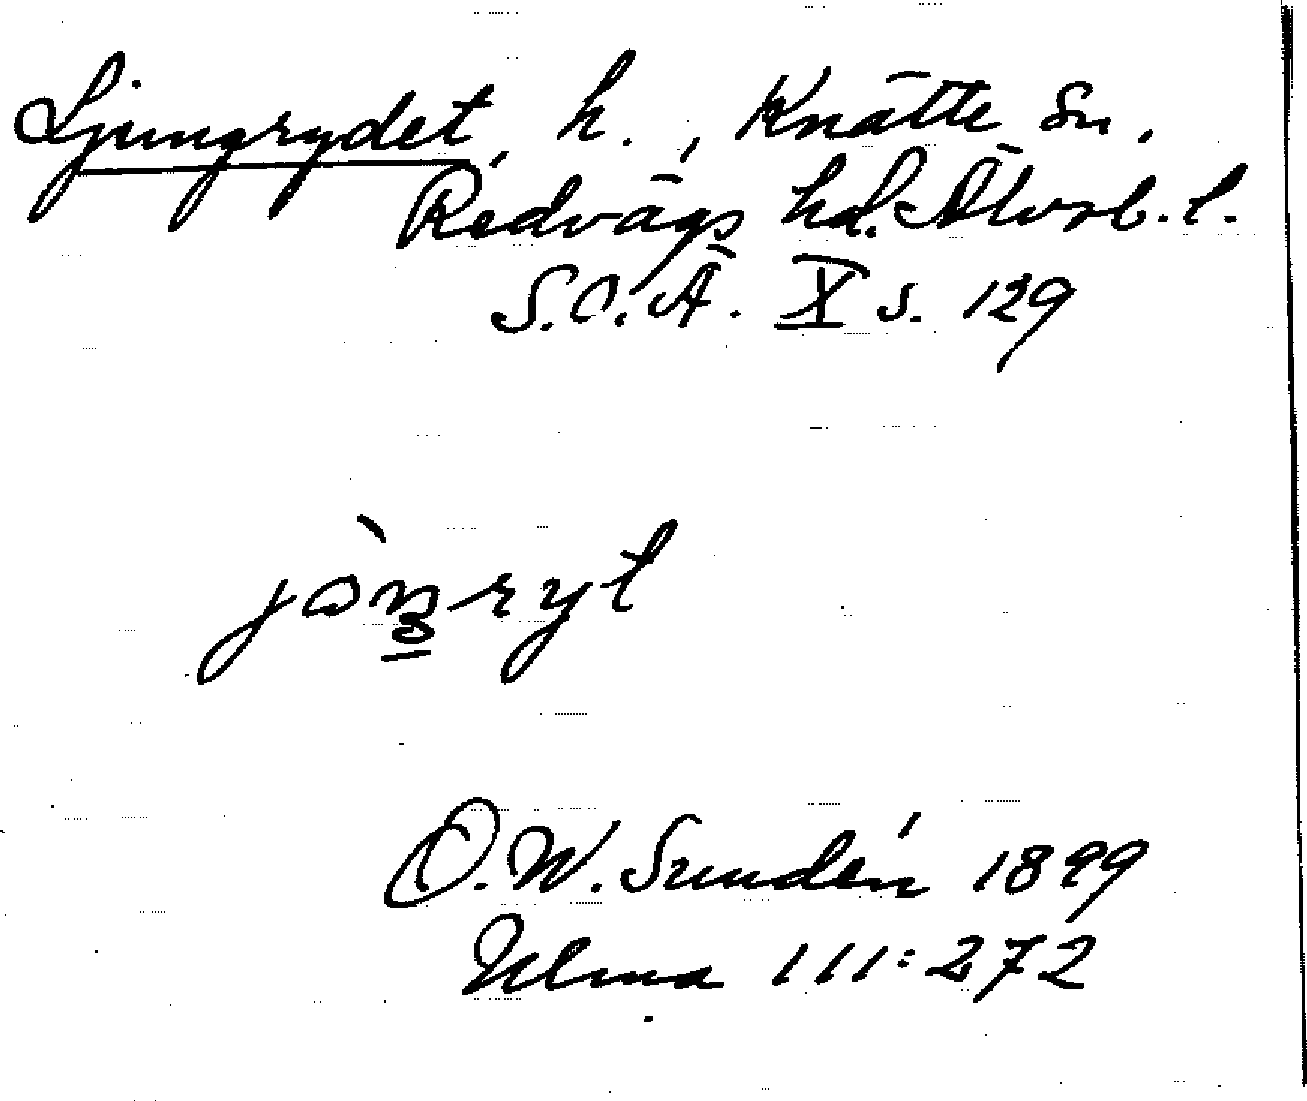 Ljungrydet, h., Knätte sn,
Redvägs hd. Älvsb. l.
S.O.Ä. X s. 129
O. W. Sundén 1899
Ulma 111:272